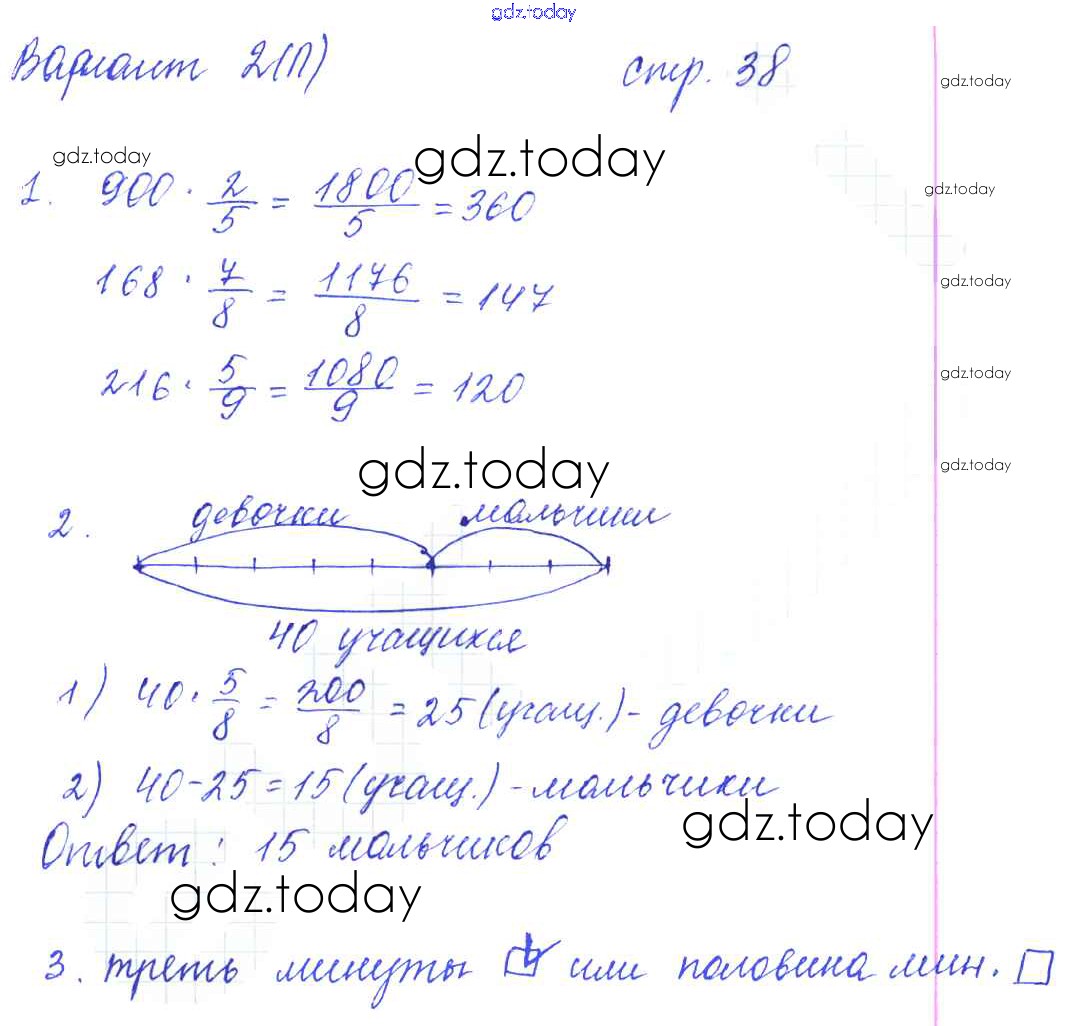 gdz.today
Вариант 2(П) стр. 38
gdz.today
gdz.today
gdz.today
1. 900 · 2/5 = 1800/5 = 360
gdz.today
168 · 7/8 = 1176/8 = 147
gdz.today
216 · 5/9 = 1080/9 = 120
gdz.today
gdz.today
gdz.today
2. девочки мальчики
40 учащихся
1) 40 · 5/8 = 200/8 = 25 (учащ.) - девочки
2) 40 - 25 = 15 (учащ.) - мальчики
gdz.today
Ответ: 15 мальчиков
gdz.today
3. треть минуты ☑ или половина мин. □